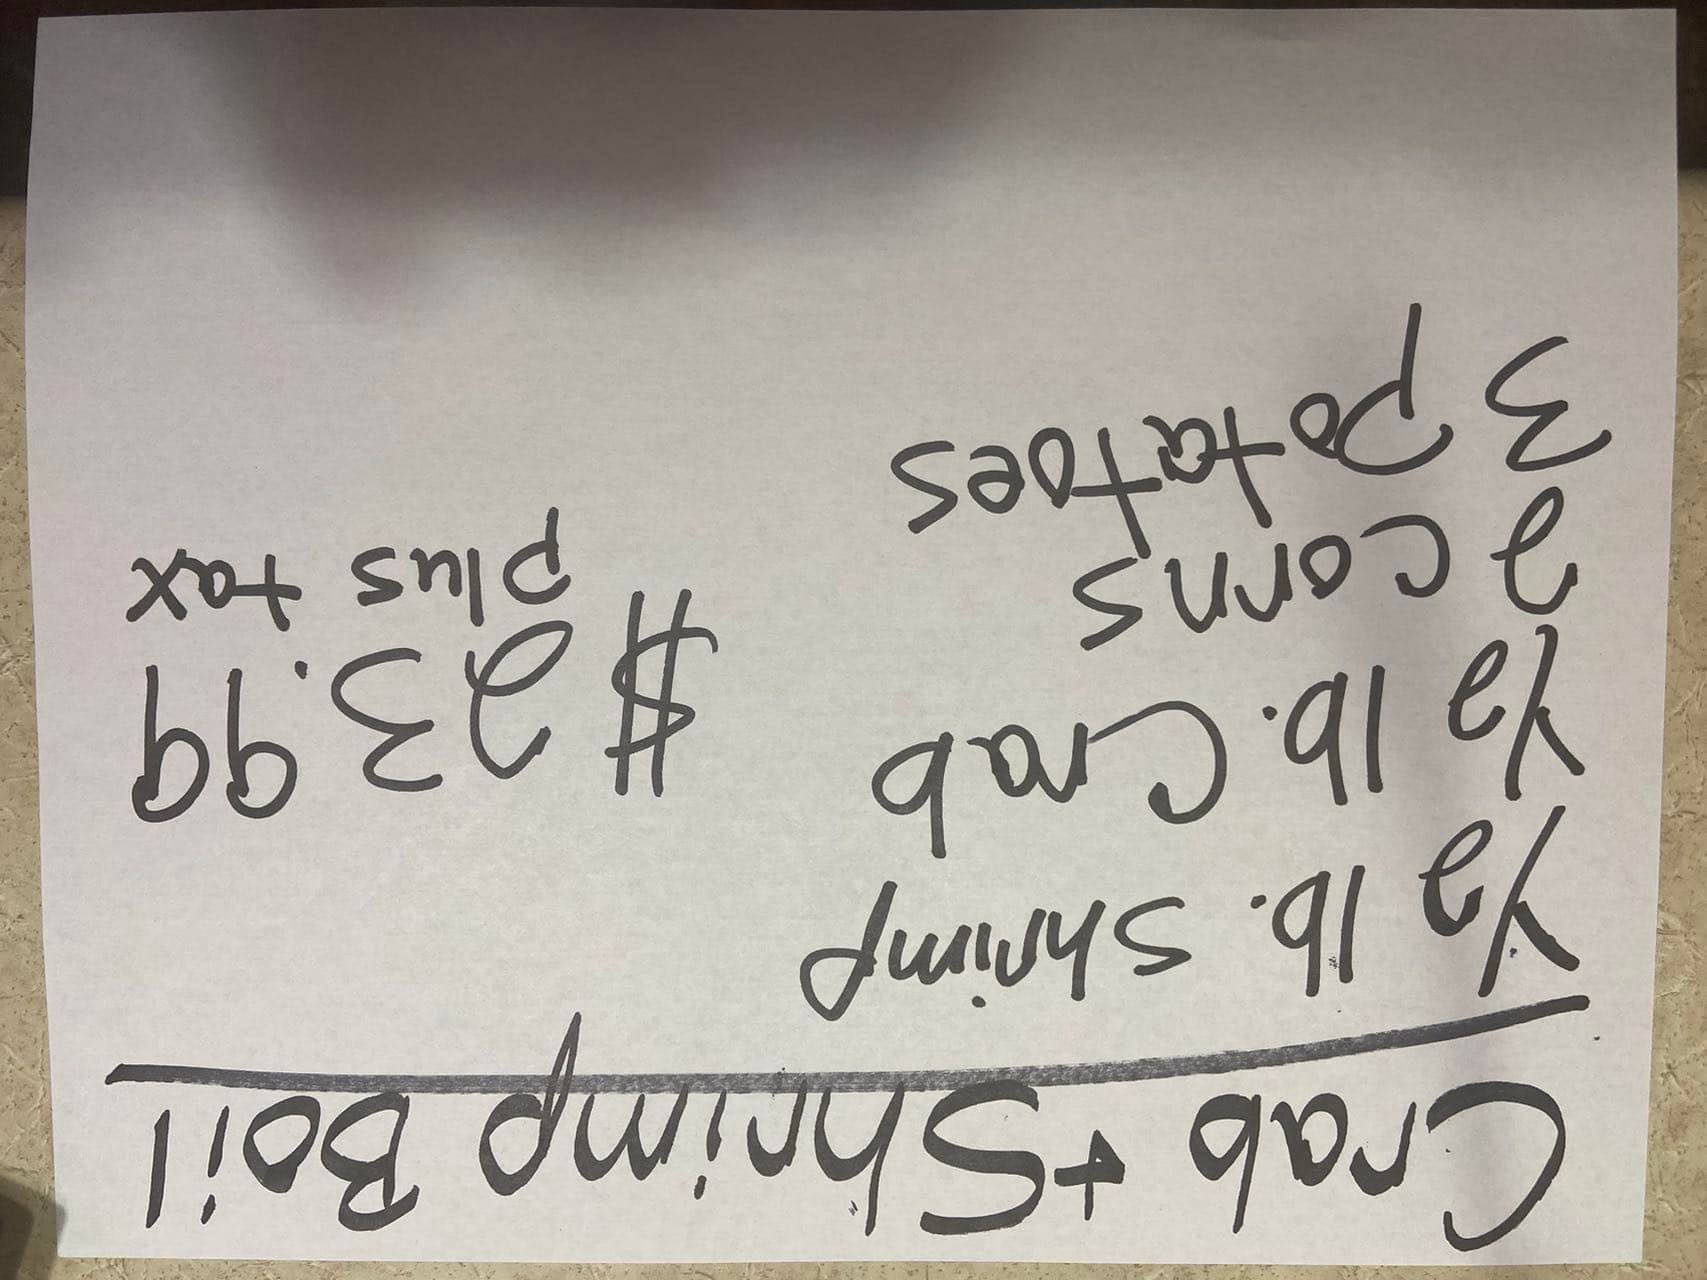 Crab + Shrimp Boil
1/2 lb. Shrimp
1/2 lb. Crab
2 corns
3 potatoes
$23.99
plus tax